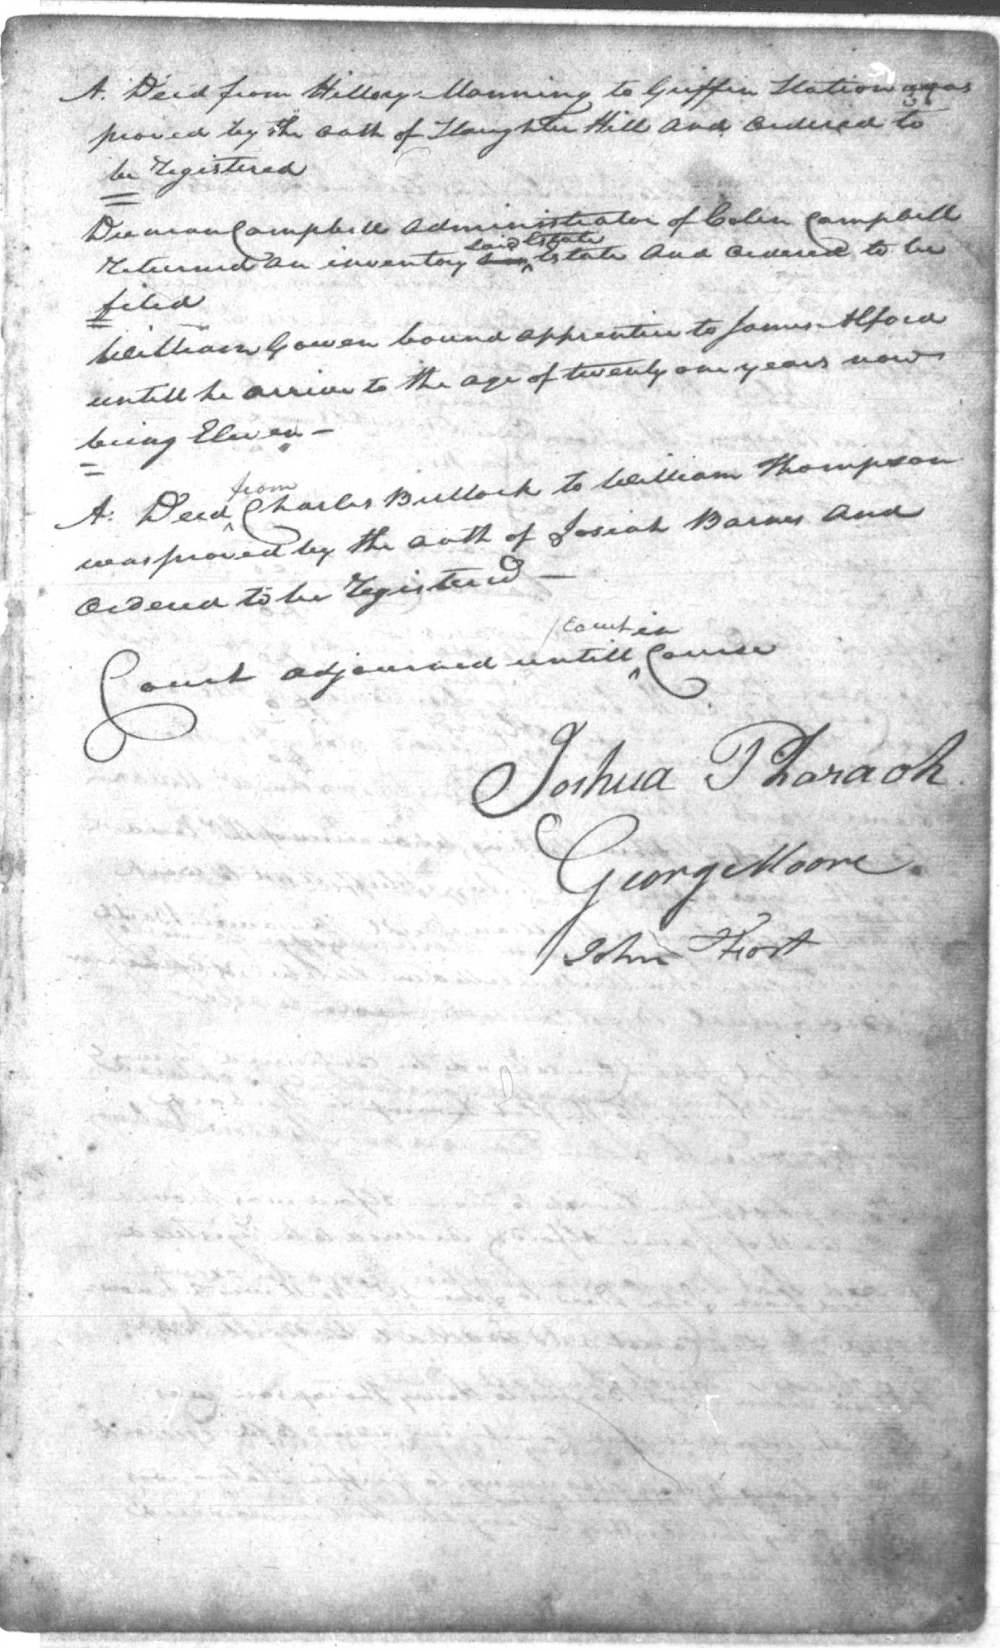 A. Deed from Hillery Manning to Griffin Station was
proved by the oath of Slaughter Hill and ordered to
be Registered
Duncan Campbell administrator of Colin Campbell
said Estate
Returned an inventory Estate and ordered to be
filed
William Gowen bound apprentice to James Alford
untill he arrive to the age of twenty one years now
being Eleven –
from
A. Deed Charles Bullock to William Thompson
was proved by the oath of Josiah Barnes and
ordered to be Registered –
Court in
Court adjourned untill Course
Joshua Pharaoh
George Moore
John Frost